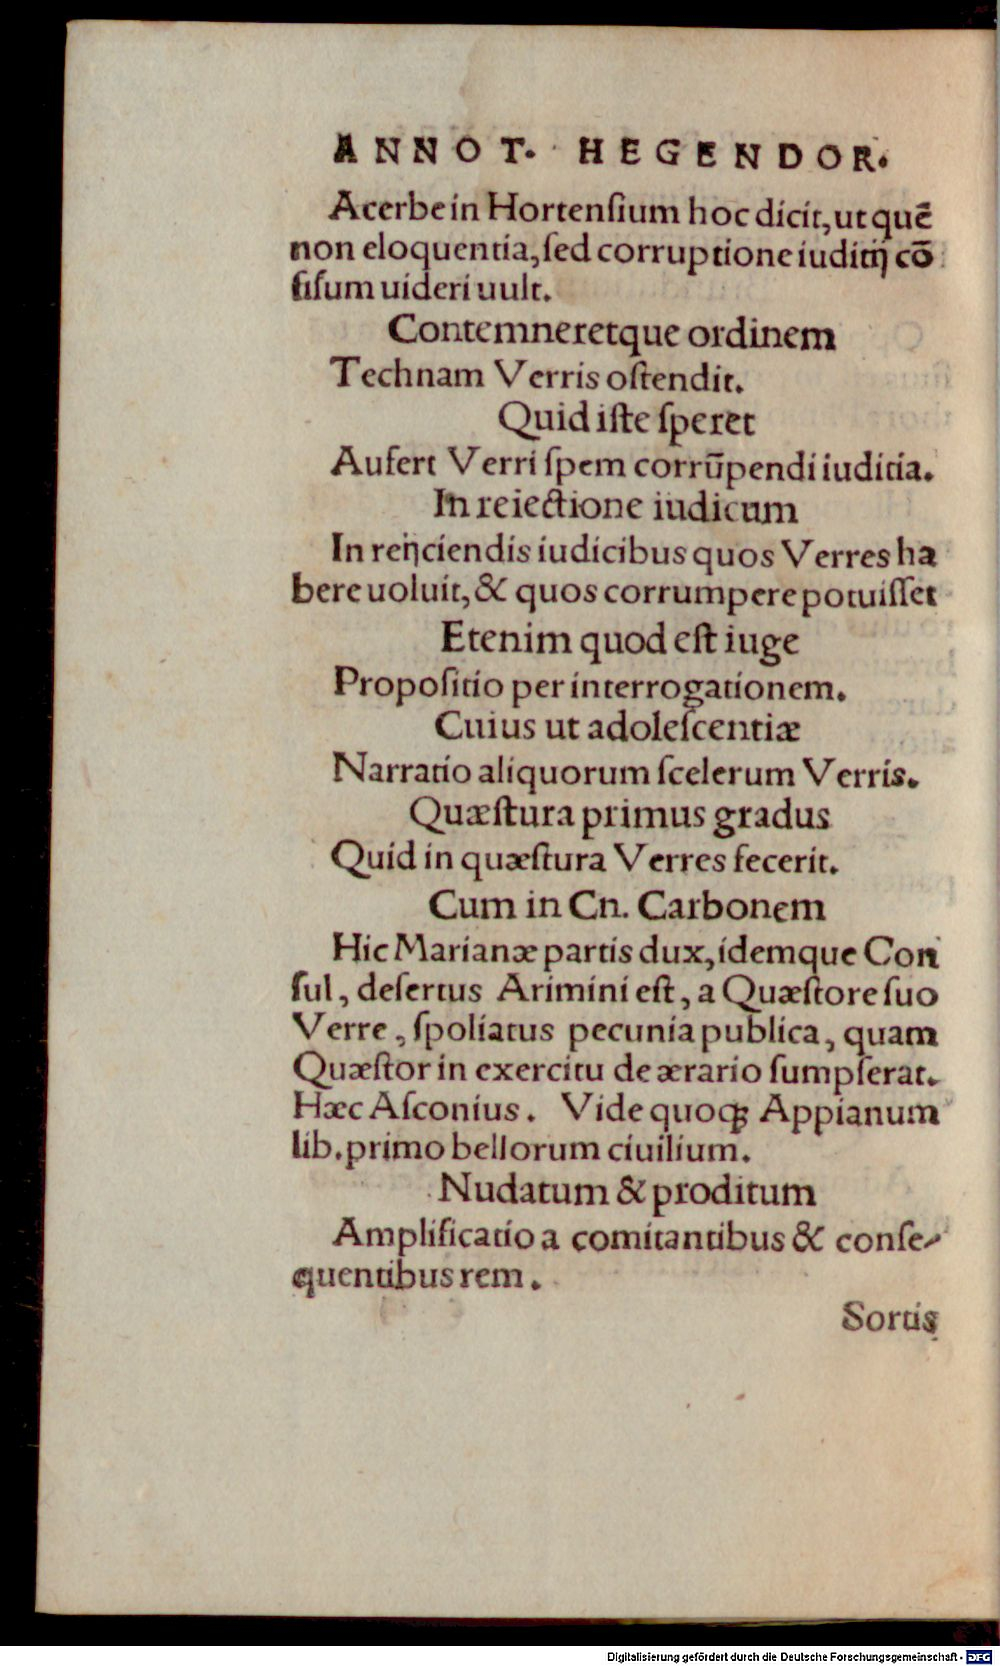 ANNOT. HEGENDOR.
Acerbe in Hortenſium hoc dicit, ut quē
non eloquentia, ſed corruptione iuditij cō
fiſum uideri uult.
Contemneretque ordinem
Technam Verris oſtendit.
Quid iſte ſperet
Aufert Verri ſpem corrūpendi iuditia.
In reiectione iudicum
In reijciendis iudicibus quos Verres ha
bere uoluit, & quos corrumpere potuiſſet
Etenim quod eſt iuge
Propoſitio per interrogationem.
Cuius ut adoleſcentiæ
Narratio aliquorum ſcelerum Verris.
Quæſtura primus gradus
Quid in quæſtura Verres fecerit.
Cum in Cn. Carbonem
Hic Marianæ partis dux, idemque Con
ſul, deſertus Arimini eſt, a Quæſtore ſuo
Verre, ſpoliatus pecunia publica, quam
Quæſtor in exercitu de ærario ſumpſerat.
Hæc Aſconius. Vide quoqꝫ Appianum
lib. primo bellorum ciuilium.
Nudatum & proditum
Amplificatio a comitantibus & conſe-
quentibus rem.
Sortis
Digitalisierung gefördert durch die Deutsche Forschungsgemeinschaft - DFG